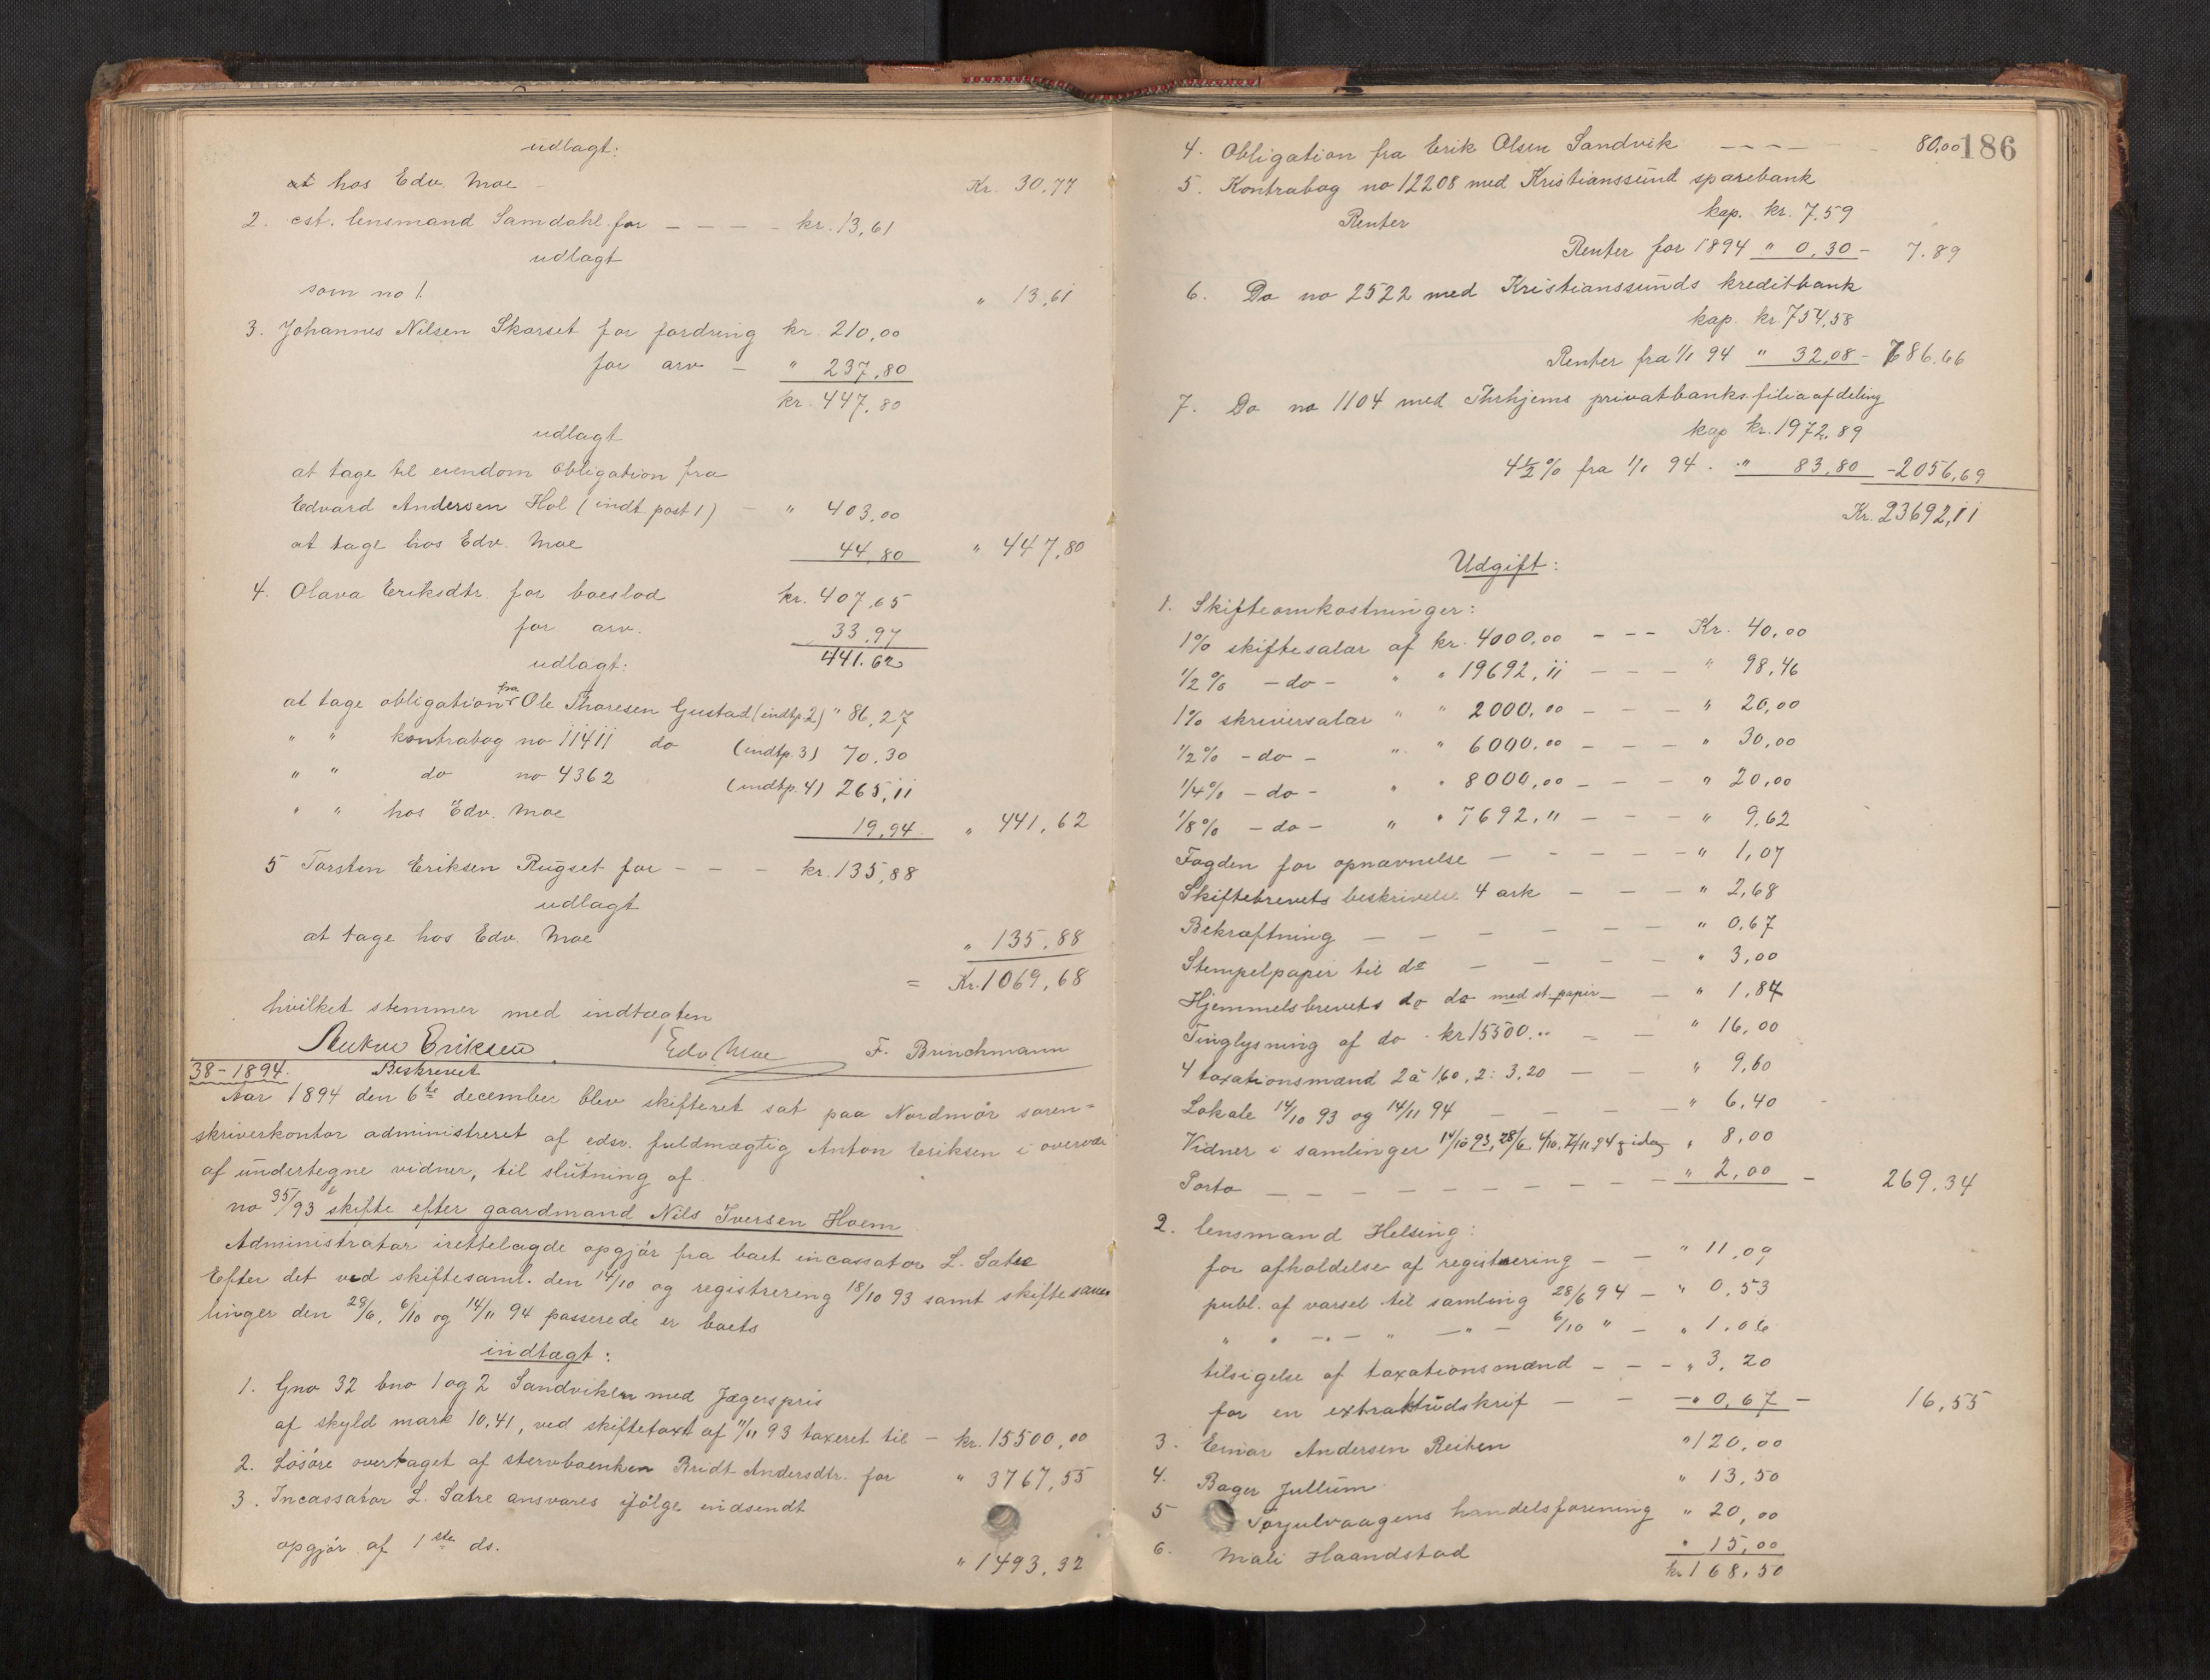 udlagt:
at hos Edv. Moe Kr. 30,77
2. cst. lensmand Samdahl for – – – – kr. 13,61
udlagt
som no 1. " 13,61
3. Johannes Nilsen Skarset for fordring kr. 210,00
for arv – " 237,80
kr. 447,80
udlagt
at tage til eiendom obligation fra
Edvard Andersen Hol (indt. post 1) – " 403,00
at tage hos Edv. Moe 44,80 " 447,80
4. Olava Eriksdtr. for boeslod kr. 407,65
for arv. 33,97
udlagt: 441.62
at tage obligation fra Ole Thoresen Gustad (indtp. 2) " 86,27
" " kontrabog no 11411 do (indtp. 3) 70.30
" " do no 4362 (indtp. 4) 265,11
" " hos Edv. Moe 19,94 " 441,62
5 Torsten Eriksen Rugset for – – – kr. 135,88
udlagt
at tage hos Edv. Moe " 135.88
= Kr. 1069,68
hvilket stemmer med indtægten
Anton Eriksen. Edv Moe F. Brinchmann
38–1894. Beskrevet
Aar 1894 den 6te december blev skifteret sat paa Nordmør soren=
skriverkontor administreret af edsv. fuldmægtig Anton Eriksen i overvær
af undertegne vidner, til slutning af
no 35/93 skifte efter gaardmand Nils Iversen Hoem
Administrator irettelagde opgjør fra boet incassator L. Satre
Efter det ved skiftesaml. den 14/10 og registrering 18/10 93 samt skiftesam
linger den 28/6, 6/10 og 14/11 94 passerede er boets
indtægt:
1. Gno 32 bno 1 og 2 Sandviken med Jægerspris
af skyld mark 10,41, ved skiftetaxt af 11/11 93 taxeret til – kr. 15500,00
2. Løsøre overtaget af stervboenken Bridt Andersdtr. for " 3767,55
3. Incassator L. Satre ansvares ifølge indsendt
opgjør af 1ste ds. " 1493,32
186
4. Obligation fra Erik Olsen Sandvik – – – – – 80,00
5. Kontrabog no 12208 med Kristianssund sparebank
kap. kr. 7.59
Renter
Renter for 1894 " 0,30 – 7.89
6. Do no 2522 med Kristianssunds kreditbank
kap. kr 754,58
Renter fra 1/1 94 " 32,08 – 786.66
7. Do no 1104 med Thrhjems privatbanks filiaafdeling
kap kr. 1972.89
4½% fra 1/1 94. " 83,80 – 2056,69
Kr. 23692,11
Udgift:
1. Skifteomkostninger:
1% skiftesalar af kr. 4000,00 – – – Kr. 40,00
1/2% – do – " " 19692,11 – – – " 98,46
1% skriversalar " " 2000,00 – – – " 20,00
1/2% – do – " " 6000,00 – – – " 30,00
1/4% – do – " " 8000,00 – – – " 20,00
1/8% – do – " " 7692,11 – – – " 9,62
Fogden for opnævnelse – – – – – " 1,07
Skiftebrevets beskrivelse 4 ark – – – " 2,68
Bekræftning – – – – – – " 0,67
Stempelpapir til do – – – – " 3,00
Hjemmelsbrevets do do med st. papir – – " 1,87
Tinglysning af do kr 15500.. – – " 16,00
4 taxationsmænd 2 à 1,60, 2: 3,20 – – " 9,60
Lokale 14/10 93 og 14/11 94 – – – – " 6,40
Vidner i samlinger 14/10 93, 28/6 6/10. 14/11 94 & idag " 8,00
Porto – – – – – – – – – – " 2,00 – 269.34
2. lensmand Helsing:
for afholdelse af registrering – – " 11,09
publ. af varsel til samling 28/6 94 – " 0,53
" " –"– " –"– 6/10 " – " 1.06
tilsigelse af taxationsmænd – – – " 3,20
for en extraktudskrif – – – " 0,67 – 16,55
3. Einar Andersen Reiten " 120,00
4. Bager Jullum " 13,50
5 Torjulvaagens handelsforening " 20,00
6. Mali Haandstad " 15,00
kr. 168,50